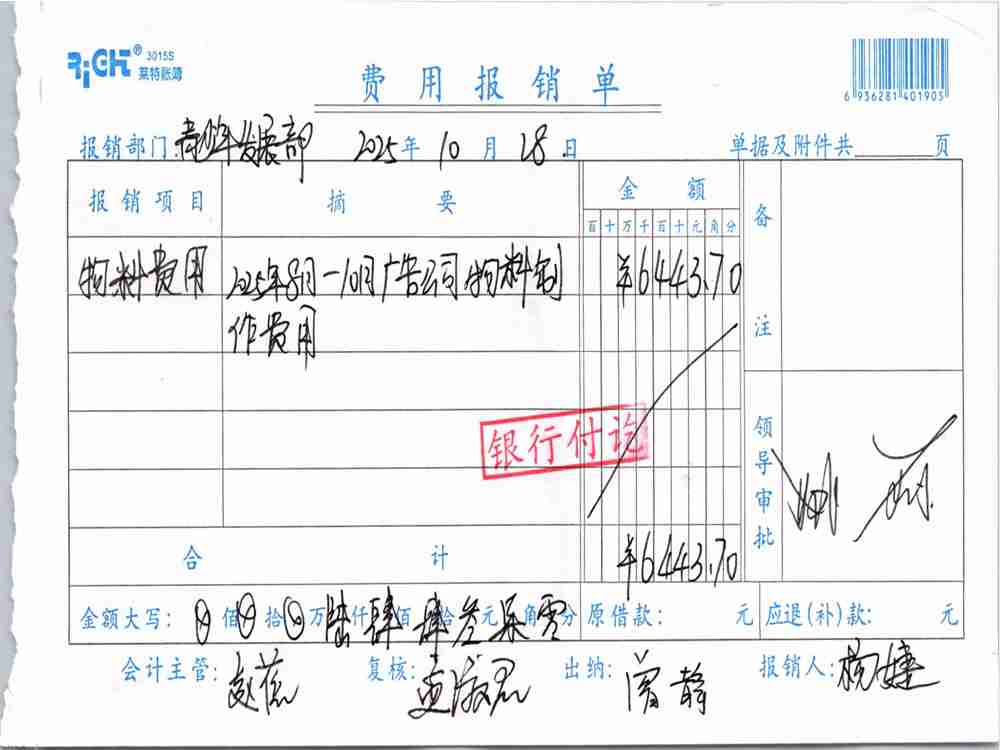 RiGHT® 3015S
莱特账簿
费用报销单
6 936281 401905
报销部门:青少年发展部 2025年10月28日 单据及附件共 页
报销项目 摘要 金额 备注
百十万千百十元角分
物料费用 2025年8月-10月广告公司物料制 ¥6443.70
作费用
银行付讫
领导审批
合计 ¥6443.70
金额大写: ⊗佰⊗拾⊗万陆仟肆佰肆拾叁元柒角零分 原借款: 元 应退(补)款: 元
会计主管: 赵蕊 复核: 孟淑君 出纳: 曾静 报销人: 杨婕